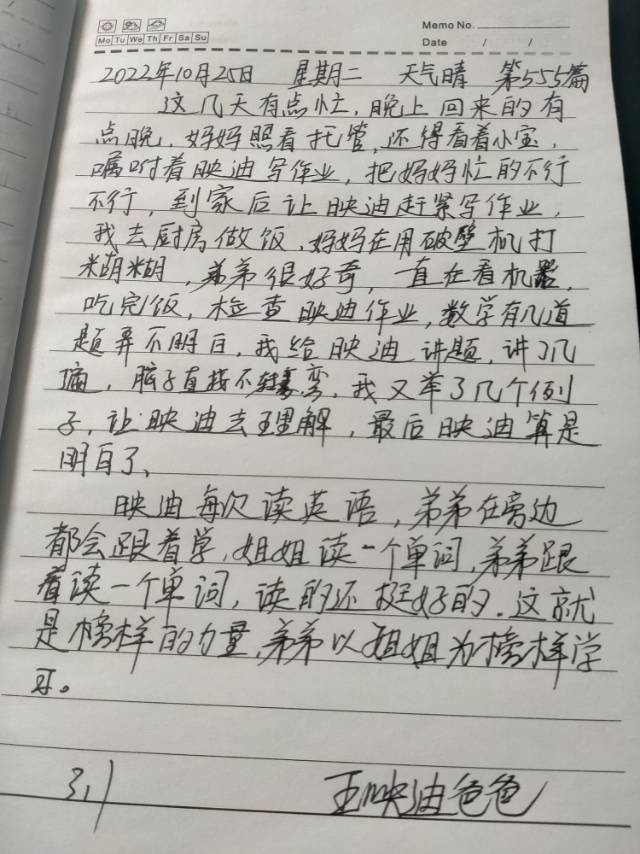 Memo No.
Mo Tu We Th Fr Sa Su
Date / /
2022年10月25日 星期二 天气晴 第555篇
这几天有点忙,晚上回来的有
点晚,妈妈照看托管,还得看着小宝,
嘱咐着映迪写作业,把妈妈忙的不行
不行,到家后让映迪赶紧写作业,
我去厨房做饭、妈妈在用破壁机打
糊糊,弟弟很好奇,一直在看机器,
吃完饭,检查映迪作业,数学有几道
题弄不明白,我给映迪讲题,讲了几
遍,脑子直接不转弯,我又举了几个例
子,让映迪去理解,最后映迪算是
明白了、
映迪每次读英语,弟弟在旁边
都会跟着学,姐姐读一个单词,弟弟跟
着读一个单词,读的还挺好的.这就
是榜样的力量,弟弟以姐姐为榜样学
习。
王映迪爸爸